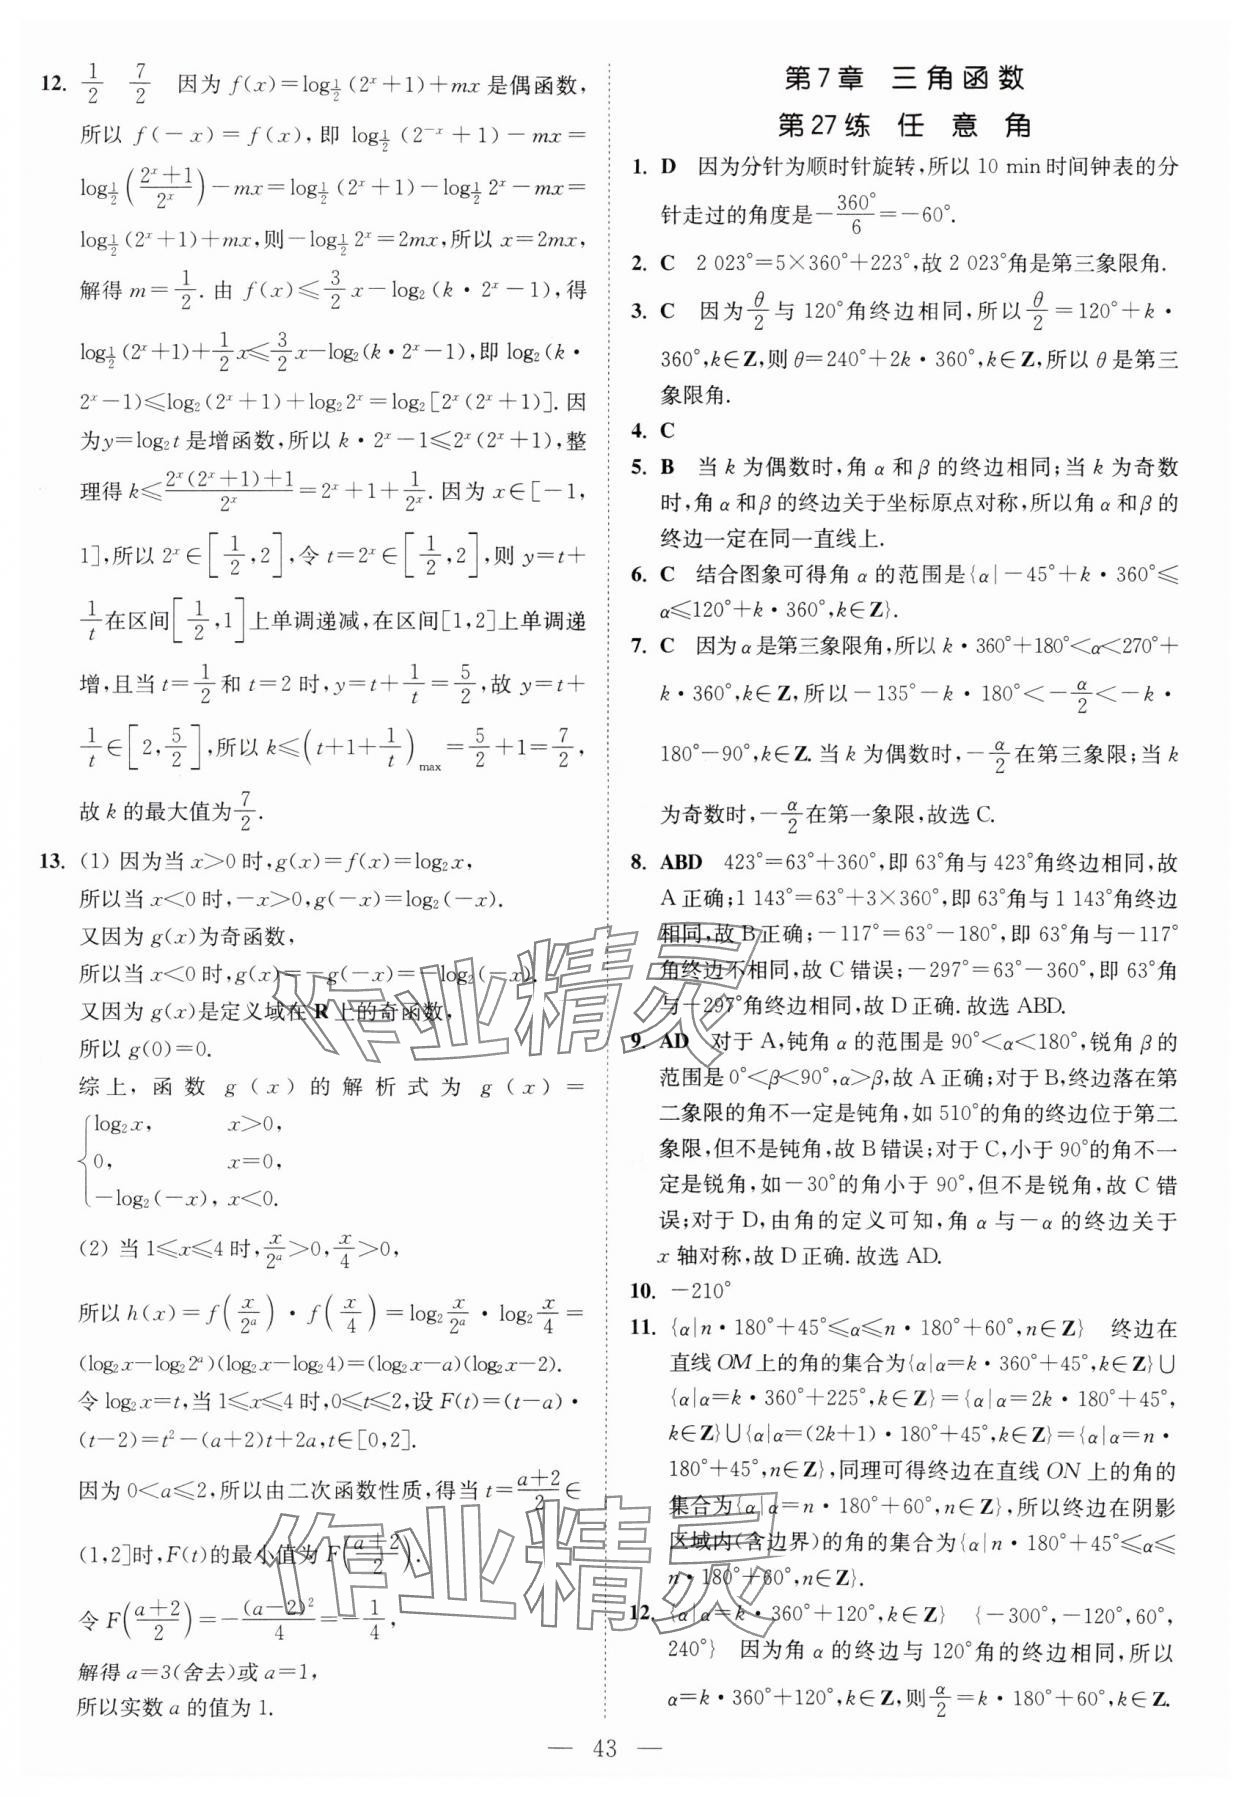 12. 1/2  7/2  因为 f(x)=log_{1/2}(2^x+1)+mx 是偶函数,
所以 f(-x)=f(x),即 log_{1/2}(2^{-x}+1)-mx=
log_{1/2}((2^x+1)/2^x)-mx=log_{1/2}(2^x+1)-log_{1/2}2^x-mx=
log_{1/2}(2^x+1)+mx,则-log_{1/2}2^x=2mx,所以 x=2mx,
解得 m=1/2.由 f(x)≤3/2x-log₂(k·2^x-1),得
log_{1/2}(2^x+1)+1/2x≤3/2x-log₂(k·2^x-1),即 log₂(k·
2^x-1)≤log₂(2^x+1)+log₂2^x=log₂[2^x(2^x+1)].因
为y=log₂t 是增函数,所以 k·2^x-1≤2^x(2^x+1),整
理得 k≤(2^x(2^x+1)+1)/2^x=2^x+1+1/2^x.因为 x∈[-1,
1],所以 2^x∈[1/2,2],令 t=2^x∈[1/2,2],则 y=t+
1/t在区间[1/2,1]上单调递减,在区间[1,2]上单调递
增,且当 t=1/2和 t=2 时,y=t+1/t=5/2,故 y=t+
1/t∈[2,5/2],所以 k≤(t+1+1/t)max=5/2+1=7/2,
故 k 的最大值为7/2.
13. (1) 因为当 x>0 时,g(x)=f(x)=log₂x,
所以当 x<0 时,-x>0,g(-x)=log₂(-x).
又因为 g(x)为奇函数,
所以当 x<0 时,g(x)=-g(-x)=-log₂(-x).
又因为 g(x)是定义域在 R 上的奇函数,
所以 g(0)=0.
综上,函数 g(x)的解析式为 g(x)=
{log₂x, x>0,
0, x=0,
-log₂(-x), x<0.
(2) 当 1≤x≤4 时,x/2^a>0,x/4>0,
所以 h(x)=f(x/2^a)·f(x/4)=log₂x/2^a·log₂x/4=
(log₂x-log₂2^a)(log₂x-log₂4)=(log₂x-a)(log₂x-2).
令 log₂x=t,当 1≤x≤4 时,0≤t≤2,设 F(t)=(t-a)·
(t-2)=t²-(a+2)t+2a,t∈[0,2].
因为 0<a≤2,所以由二次函数性质,得当 t=(a+2)/2∈
(1,2]时,F(t)的最小值为 F((a+2)/2).
令 F((a+2)/2)=-(a-2)²/4=-1/4,
解得 a=3(舍去)或 a=1,
所以实数 a 的值为 1.
第 7 章 三角函数
第 27 练 任 意 角
1. D 因为分针为顺时针旋转,所以 10 min时间钟表的分
针走过的角度是-360°/6=-60°.
2. C 2 023°=5×360°+223°,故 2 023°角是第三象限角.
3. C 因为θ/2与 120°角终边相同,所以θ/2=120°+k·
360°,k∈Z,则 θ=240°+2k·360°,k∈Z,所以 θ 是第三
象限角.
4. C
5. B 当 k 为偶数时,角 α 和 β 的终边相同;当 k 为奇数
时,角 α 和 β 的终边关于坐标原点对称,所以角 α 和 β 的
终边一定在同一直线上.
6. C 结合图象可得角 α 的范围是{α|-45°+k·360°≤
α≤120°+k·360°,k∈Z}.
7. C 因为 α 是第三象限角,所以 k·360°+180°<α<270°+
k·360°,k∈Z,所以-135°-k·180°<-α/2<-k·
180°-90°,k∈Z.当 k 为偶数时,-α/2在第三象限;当 k
为奇数时,-α/2在第一象限,故选 C.
8. ABD 423°=63°+360°,即 63°角与 423°角终边相同,故
A 正确;1 143°=63°+3×360°,即 63°角与 1 143°角终边
相同,故 B 正确;-117°=63°-180°,即 63°角与-117°
角终边不相同,故 C 错误;-297°=63°-360°,即 63°角
与-297°角终边相同,故 D 正确.故选 ABD.
9. AD 对于 A,钝角 α 的范围是 90°<α<180°,锐角 β 的
范围是 0°<β<90°,α>β,故 A 正确;对于 B,终边落在第
二象限的角不一定是钝角,如 510°的角的终边位于第二
象限,但不是钝角,故 B 错误;对于 C,小于 90°的角不一
定是锐角,如-30°的角小于 90°,但不是锐角,故 C 错
误;对于 D,由角的定义可知,角 α 与-α 的终边关于
x 轴对称,故 D 正确.故选 AD.
10. -210°
11. {α|n·180°+45°≤α≤n·180°+60°,n∈Z} 终边在
直线 OM 上的角的集合为{α|α=k·360°+45°,k∈Z}∪
{α|α=k·360°+225°,k∈Z}={α|α=2k·180°+45°,
k∈Z}∪{α|α=(2k+1)·180°+45°,k∈Z}={α|α=n·
180°+45°,n∈Z},同理可得终边在直线 ON 上的角的
集合为{α|α=n·180°+60°,n∈Z},所以终边在阴影
区域内(含边界)的角的集合为{α|n·180°+45°≤α≤
n·180°+60°,n∈Z}.
12. {α|α=k·360°+120°,k∈Z} {-300°,-120°,60°,
240°} 因为角 α 的终边与 120°角的终边相同,所以
α=k·360°+120°,k∈Z,则α/2=k·180°+60°,k∈Z.
— 43 —
作业精灵
作业精灵